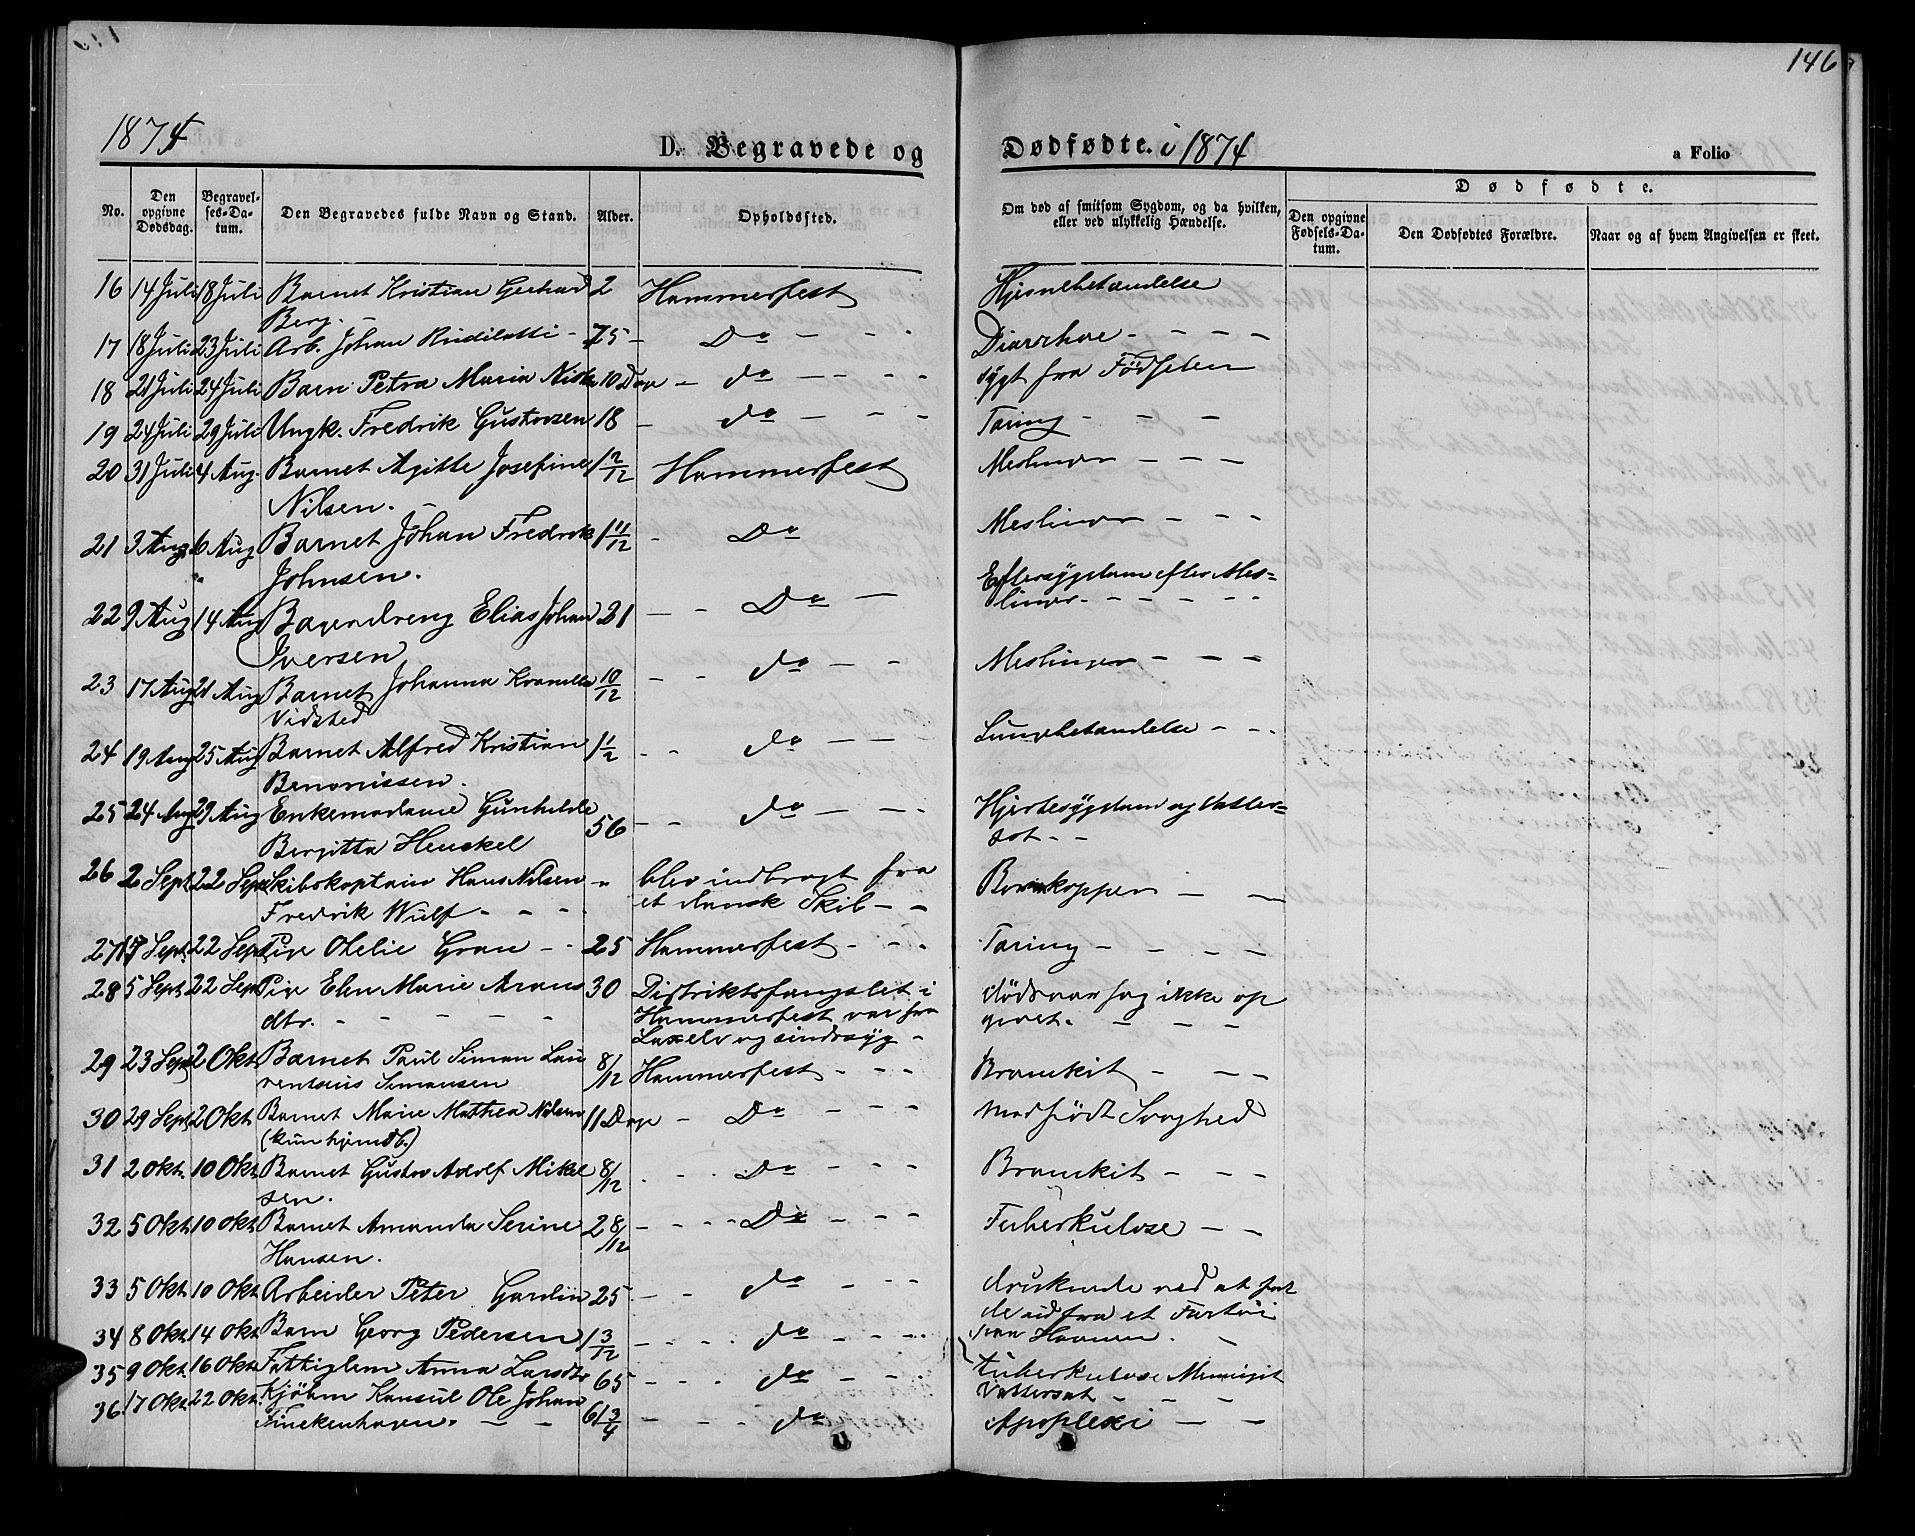 146
1874
D. Begravede og Dødfødte. i 1874
a Folio
No.
Den opgivne Dødsdag.
Begravelses-Datum.
Den Begravedes fulde Navn og Stand.
Alder.
Opholdssted.
Om død af smitsom Sygdom, og da hvilken, eller ved ulykkelig Hændelse.
Dødfødte.
Den opgivne Fødsels-Datum.
Den Dødfødtes Forældre.
Naar og af hvem Angivelsen er skeet.
16 14 Juli 18 Juli Barnet Kristian Gerhard 2 Hammerfest Hjernebetændelse
Berg. -
17 18 Juli 23 Juli Arb. Johan - 75 - Do - - - Diarrhoe - - - -
18 21 Juli 24 Juli Barn Petra Maria 10 Dage - do - - - - sygt fra Fødselen
19 24 Juli 29 Juli Ungk. Fredrik Gustavsen 18 - do - - - Tæring - - -
20 31 Juli 4 Aug. Barnet Agitte Josefine 1 2/12 Hammerfest Meslinger - - -
Nilsen. -
21 3 Aug 6 Aug Barnet Johan Fredrik 1 11/12 - Do Meslinger - - -
Johnsen.
22 9 Aug 14 Aug Elias Johan 21 - - Do - Eftersygdom efter Mes=
Iversen linger - - - - - -
23 17 Aug 21 Aug Barnet Johanna 10/12 - - do - - Meslinger - - -
Vidsted
24 19 Aug 25 Aug Barnet Alfred Kristian 1 1/2 - - do - - Lungebetændelse - - -
Benonissen.
25 24 Aug 29 Aug Enkemadame Gunhilde 56 - - do - - - Hjertesygdom og Vatter=
Bergitta Henskel sot - -
26 2 Sept 22 Sept Skibskaptain Hans Nilsen " blev indbragt fra Bornkopper - -
Fredrik Wulf - - - et dansk Skib - -
27 17 Sept. 22 Sept Pige Ohelie Gran - - 25 Hammerfest - - - Tæring - - - -
28 5 Sept 22 Sept Pige Elen Marie Arons 30 Distriktsfængslet i Dødsaarsag ikke op
dtr. - - - - - Hammerfest var fra givet. - - -
Laxelv og sindssyg -
29 23 Sept 2 Okt. Barnet Paul Simon Lau 8/12 Hammerfest - - - Bronkit - - -
rentsius Simonsen
30 29 Sept 2 Okt. Barnet Marie Mathea Nilsen 11 Dage - Do - - - Medfødt Svaghed
(kun hjemdb.)
31 2 Okt. 10 Okt. Barnet Gustav Adolf Mikkel 8/12 - - - Do - - - Bronkit - - -
sen.
32 5 Okt. 10 Okt. Barnet Amanda Serine 2 8/12 - - - - Do - - - Tuberkulose - -
Hansen.
33 5 Okt. 10 Okt. Arbeider Peter Gardin 25 - - do - - - druknede ved at fal
de ud fra et Fartøi
paa Havnen. -
34 8 Okt. 14 Okt. Barn Georg Pedersen 1 3/12 - - - - do - - - -
35 9 Okt. 16 Okt. Fattiglem Anna Larsdtr 65 - - - do - - - tuberkulose
Vattersot - - - -
36. 17 Okt. 22 Okt. Kjøbm Konsul Ole Johan 61 3/4 - - - do - Apoplexi - -
Finckenhagen. - -